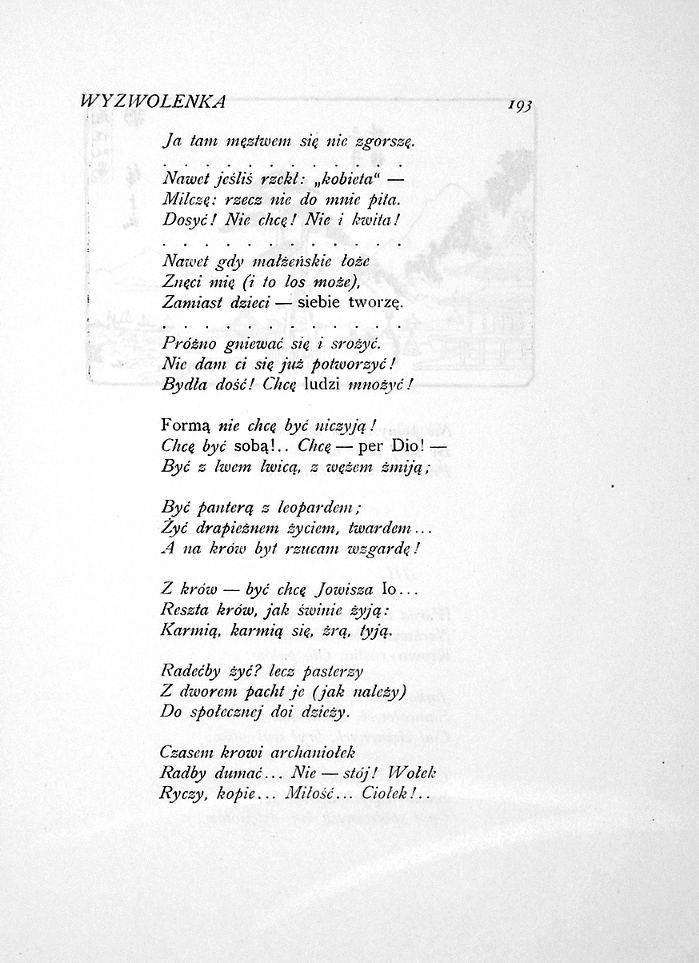 WYZWOLENKA 193
Ja tam męztwem się nie zgorszę.
. . . . . . . . . . . .
Nawet jeśliś rzekł: „kobieta“ —
Milczę: rzecz nie do mnie pita.
Dosyć! Nie chcę! Nie i kwita!
. . . . . . . . . . . .
Nawet gdy małżeńskie łoże
Znęci mię (i to los może),
Zamiast dzieci — siebie tworzę.
. . . . . . . . . . . .
Próżno gniewać się i srożyć.
Nie dam ci się już potworzyć!
Bydła dość! Chcę ludzi mnożyć!
Formą nie chcę być niczyją!
Chcę być sobą!.. Chcę — per Dio! —
Być z lwem lwicą, z wężem żmiją;
Być panterą z leopardem;
Żyć drapieżnem życiem, twardem...
A na krów byt rzucam wzgardę!
Z krów — być chcę Jowisza Io...
Reszta krów, jak świnie żyją:
Karmią, karmią się, żrą, tyją.
Radećby żyć? lecz pasterzy
Z dworem pacht je (jak należy)
Do społecznej doi dzieży.
Czasem krowi archaniołek
Radby dumać... Nie — stój! Wołek
Ryczy, kopie... Miłość... Ciołek!..